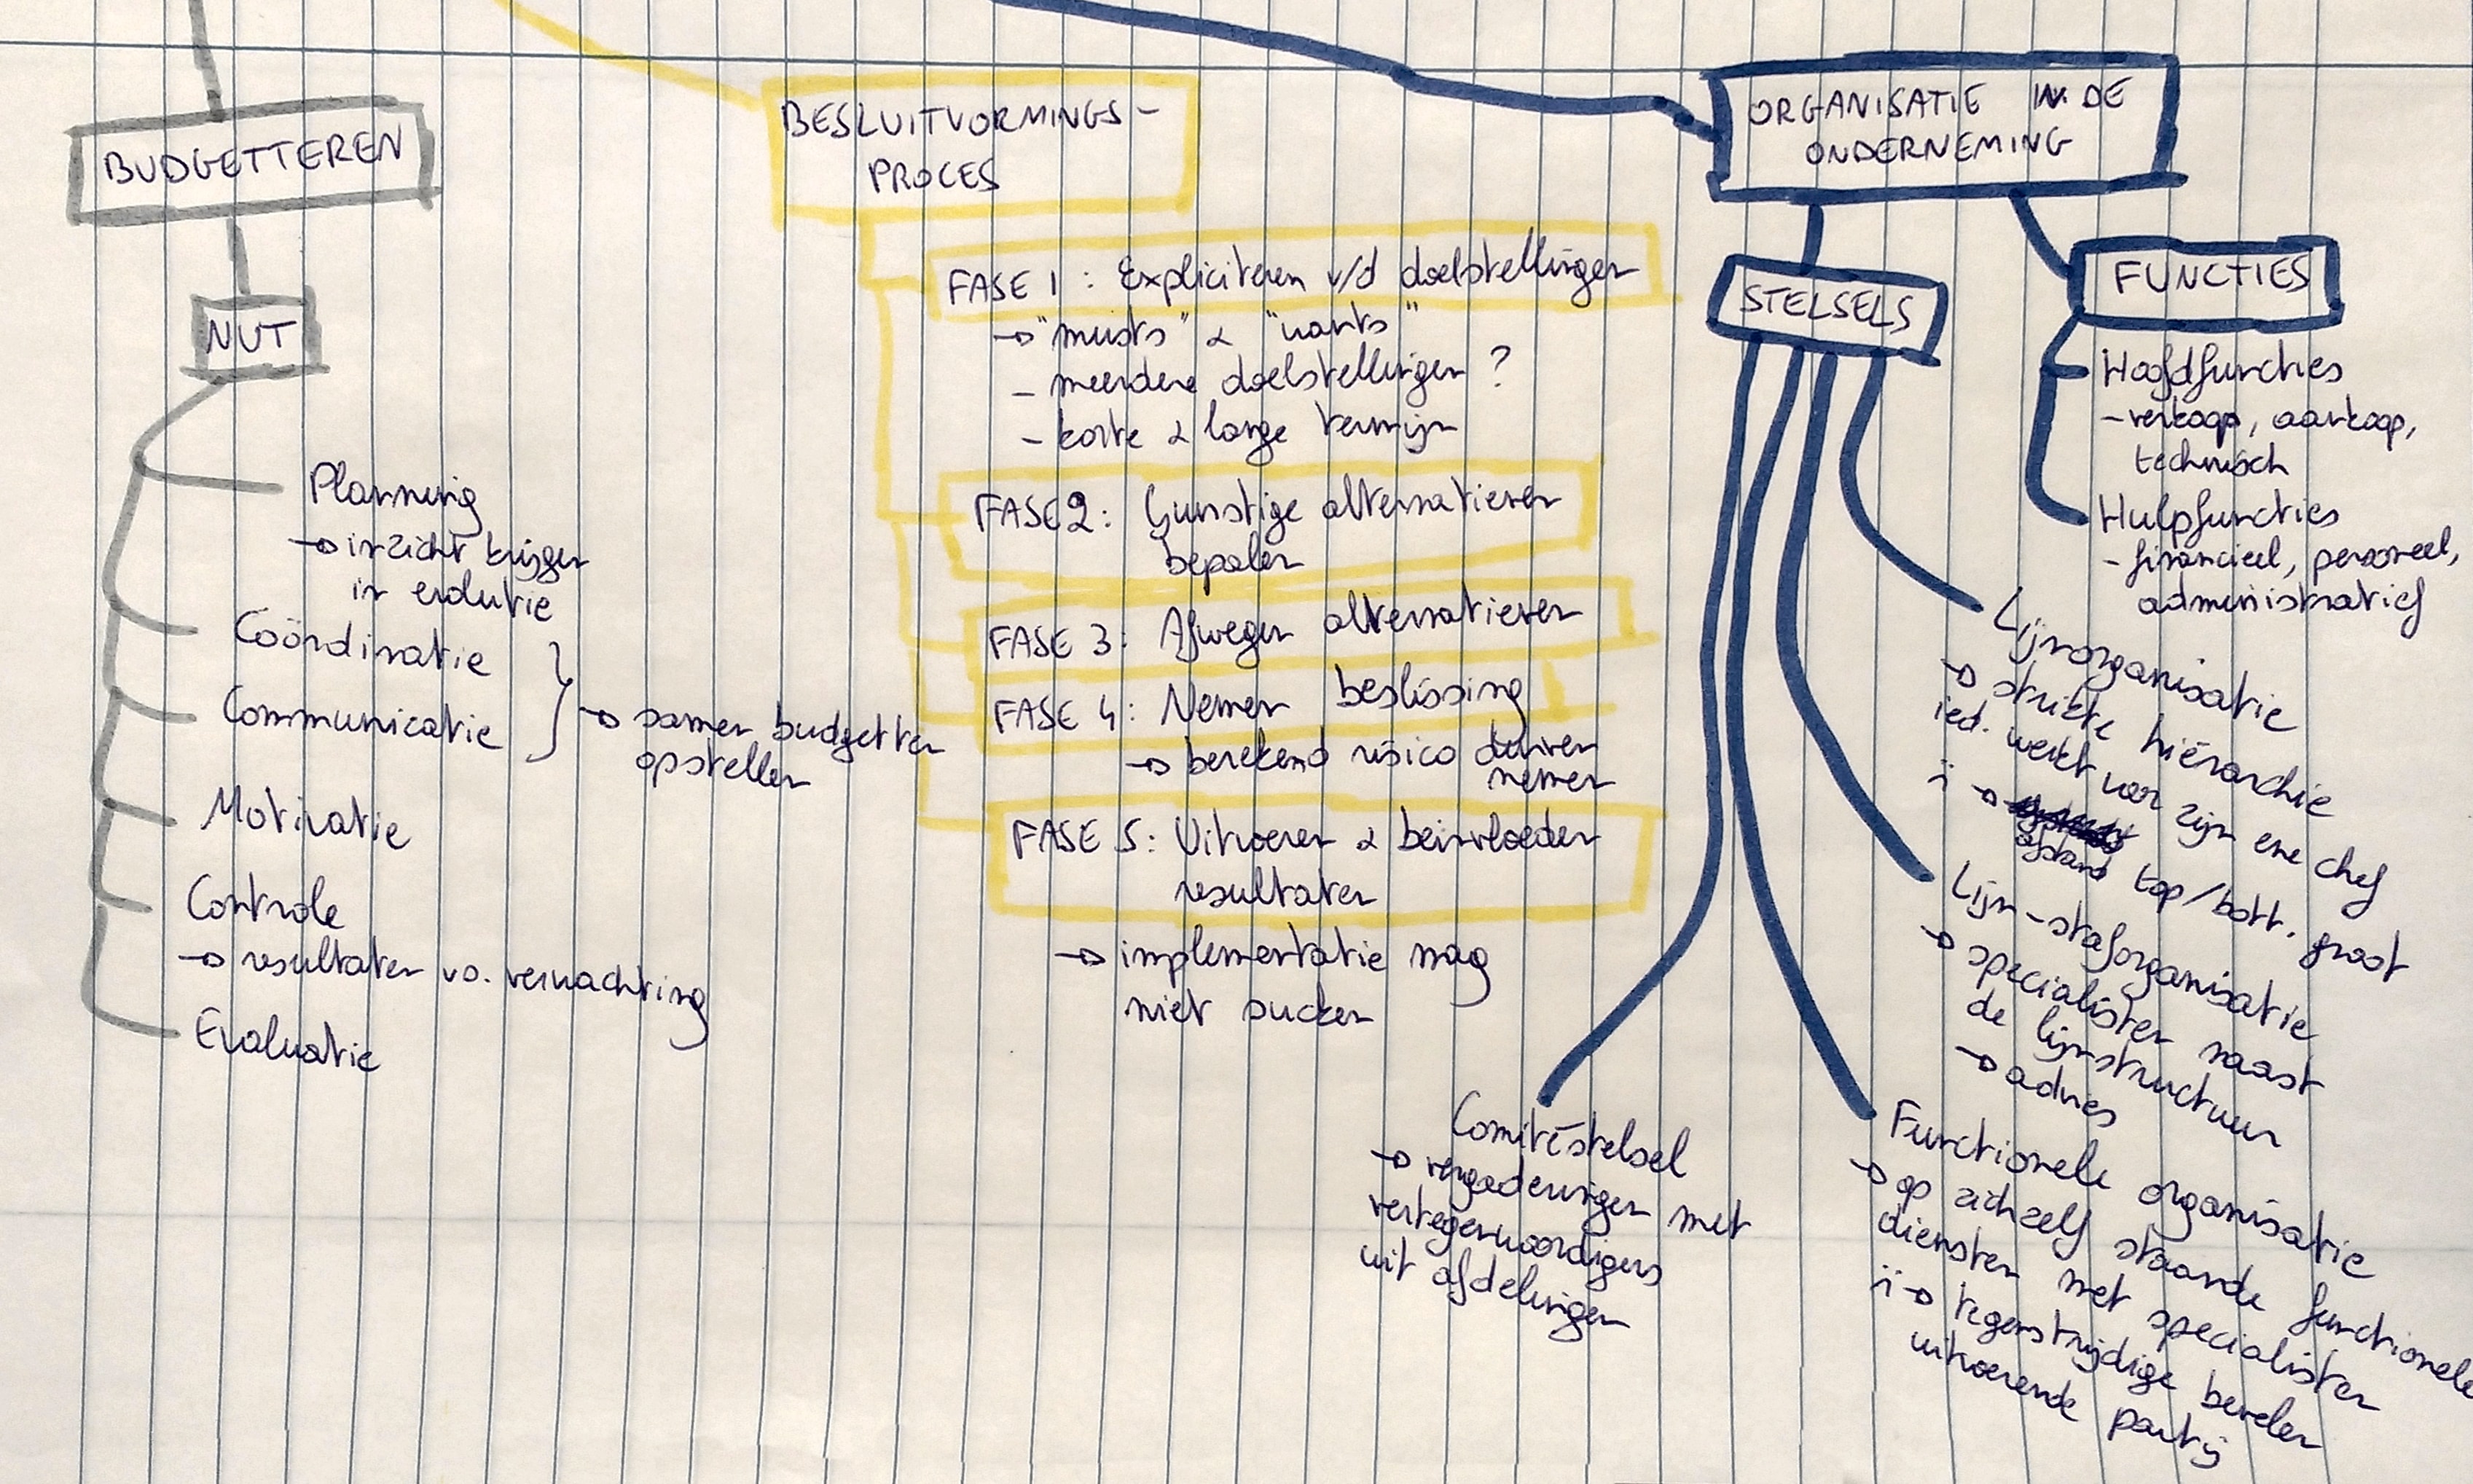 BUDGETTEREN
NUT
Planning
→ inzicht krijgen
in evolutie
Coördinatie
Communicatie
→ samen budgetten
opstellen
Motivatie
Controle
→ resultaten vs. verwachting
Evaluatie
BESLUITVORMINGS-
PROCES
FASE 1: Expliciteren v/d doelstellingen
→ "musts" & "wants"
- meerdere doelstellingen?
- korte & lange termijn
FASE 2: Gunstige alternatieven
bepalen
FASE 3: Afwegen alternatieven
FASE 4: Nemen beslissing
→ berekend risico durven
nemen
FASE 5: Uitvoeren & beïnvloeden
resultaten
→ implementatie mag
niet sucken
ORGANISATIE IN DE
ONDERNEMING
STELSELS
FUNCTIES
Hoofdfuncties
- verkoop, aankoop,
technisch
Hulpfuncties
- financieel, personeel,
administratief
Lijnorganisatie
→ strikte hiërarchie
ied. werkt voor zijn ene chef
→ afstand top/bott. groot
Lijn-staforganisatie
→ specialisten naast
de lijnstructuur
→ advies
Functionele organisatie
→ op zichzelf staande functionele
diensten met specialisten
→ tegenstrijdige bevelen
uitvoerende partij
Comitéstelsel
→ vergaderingen met
vertegenwoordigers
uit afdelingen